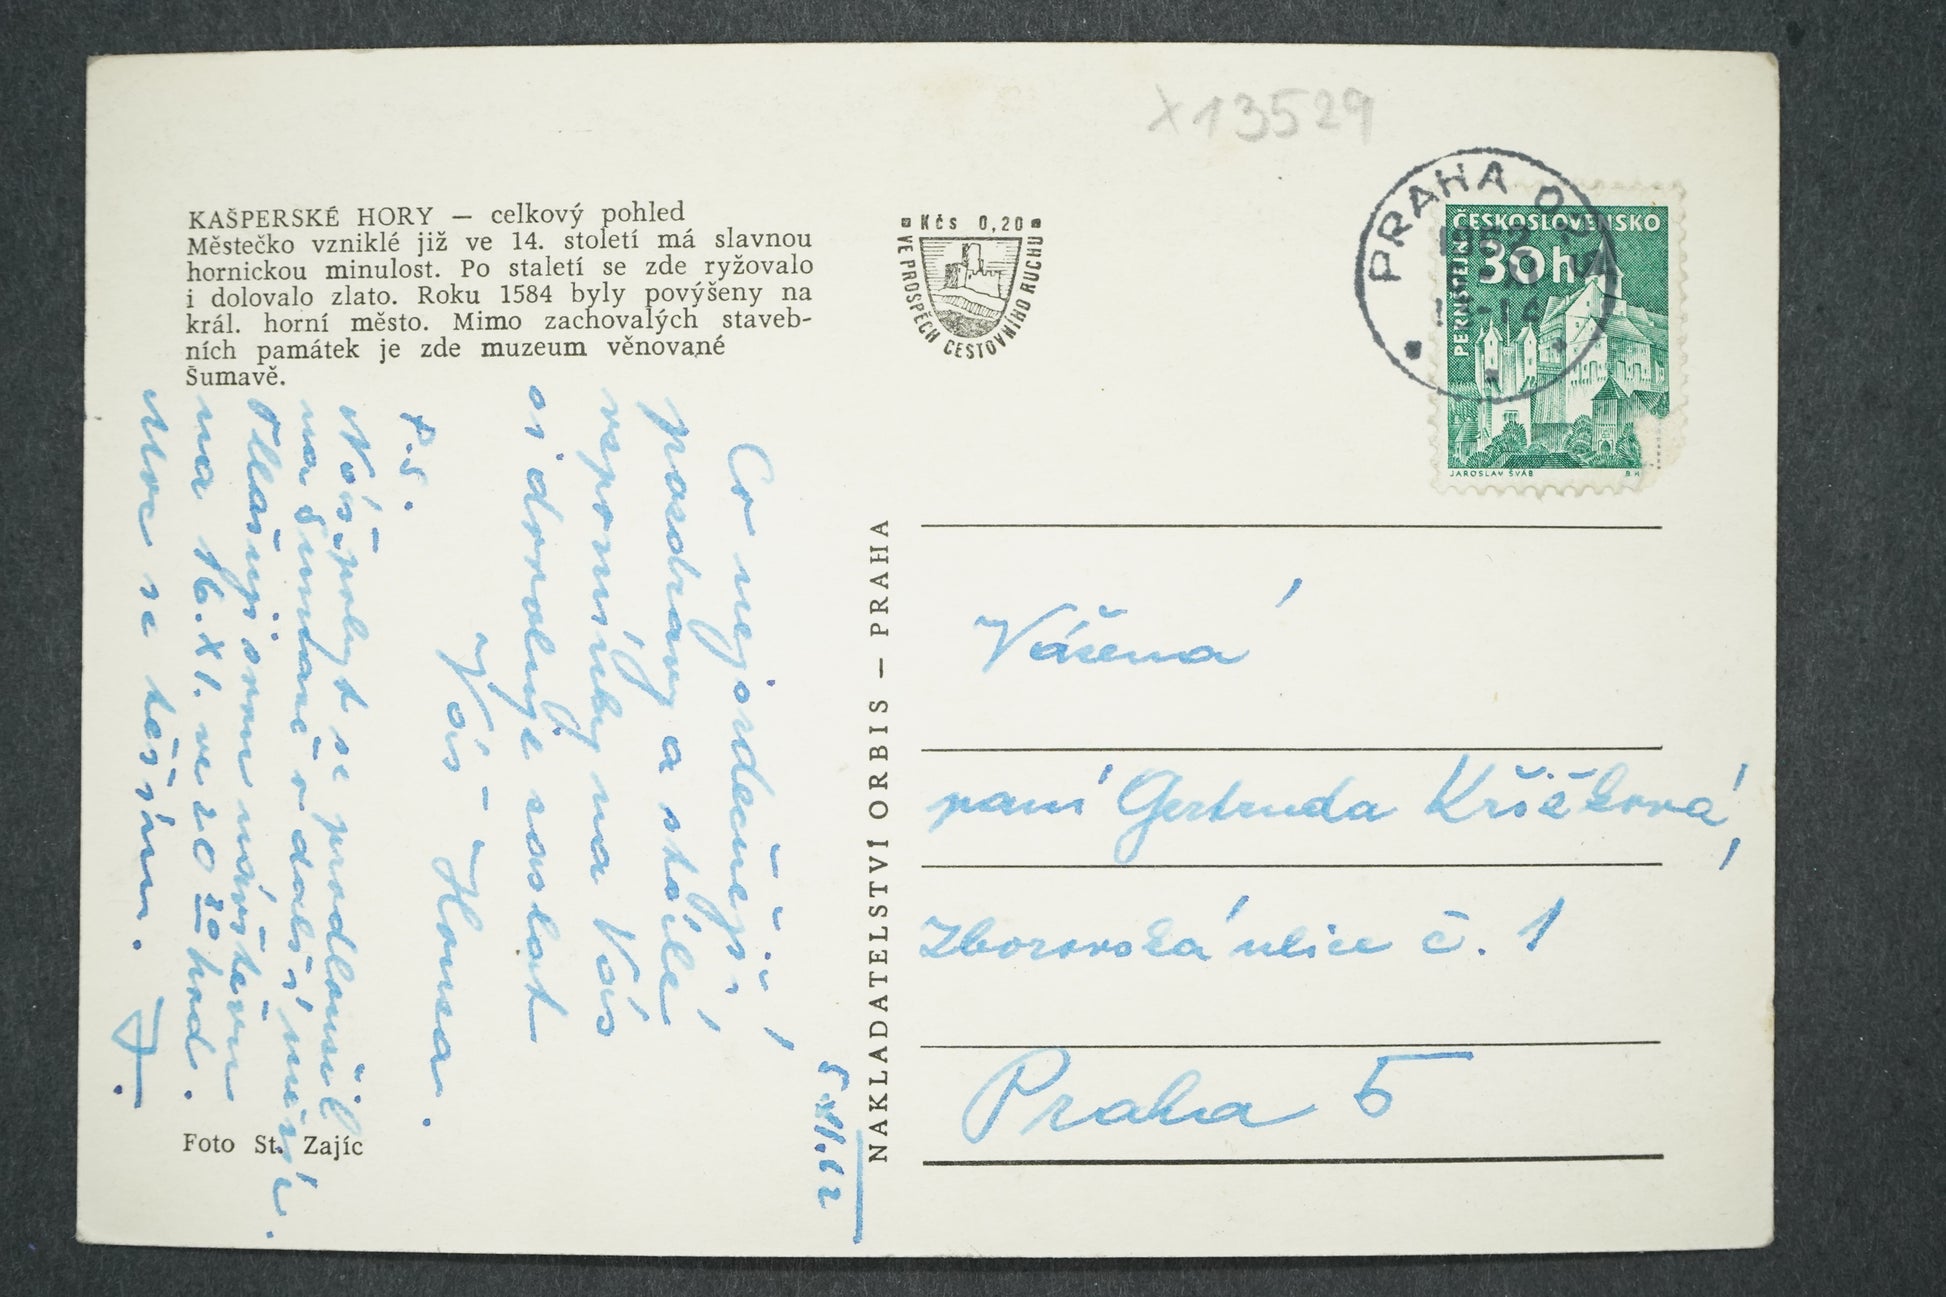 X13529
KAŠPERSKÉ HORY — celkový pohled
Městečko vzniklé již ve 14. století má slavnou
hornickou minulost. Po staletí se zde ryžovalo
i dolovalo zlato. Roku 1584 byly povýšeny na
král. horní město. Mimo zachovalých staveb-
ních památek je zde muzeum věnované
Šumavě.
Kčs 0,20
VE PROSPĚCH CESTOVNÍHO RUCHU
PRAHA
ČESKOSLOVENSKO
30h
PERNŠTEJN
JAROSLAV ŠVÁB
5.XI.62
Co nejsrdečnější
pozdravy a stálé
vzpomínky na Vás
si dovoluje zaslat
Váš - Honza.
P.S.
Náš pobyt se prodloužil
na Šumavě o další
Ohlašuji svou návštěvu
na 16.XI. ve 20 00 hod.
Moc se těším. J.
Foto St. Zajíc
NAKLADATELSTVÍ ORBIS — PRAHA
Vážená
paní Gertruda Křičková,
Zborovská ulice č. 1
Praha 5